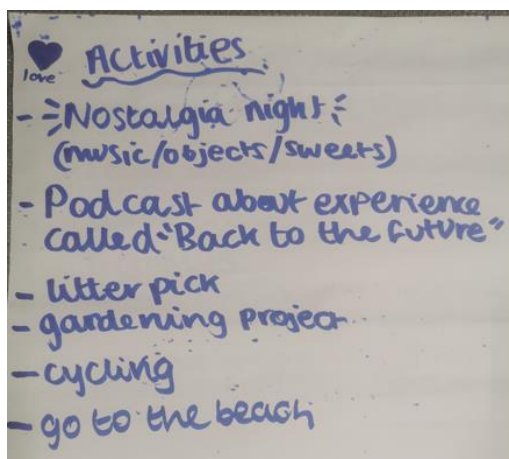 Activities
love
- Nostalgia night
(music/objects/sweets)
- Podcast about experience
called "Back to the future"
- litter pick
- gardening project
- cycling
- go to the beach